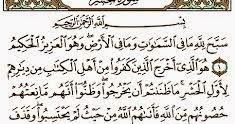 سورة الحشر
بسم الله الرحمن الرحيم
سَبَّحَ لِلَّهِ مَا فِي السَّمَاوَاتِ وَمَا فِي الْأَرْضِ وَهُوَ الْعَزِيزُ الْحَكِيمُ
١ هُوَ الَّذِي أَخْرَجَ الَّذِينَ كَفَرُوا مِنْ أَهْلِ الْكِتَابِ مِن دِيَارِهِمْ
لِأَوَّلِ الْحَشْرِ مَا ظَنَنتُمْ أَن يَخْرُجُوا وَظَنُّوا أَنَّهُم مَّانِعَتُهُمْ
حُصُونُهُم مِّنَ اللَّهِ فَأَتَاهُمُ اللَّهُ مِنْ حَيْثُ لَمْ يَحْتَسِبُوا وَقَذَفَ